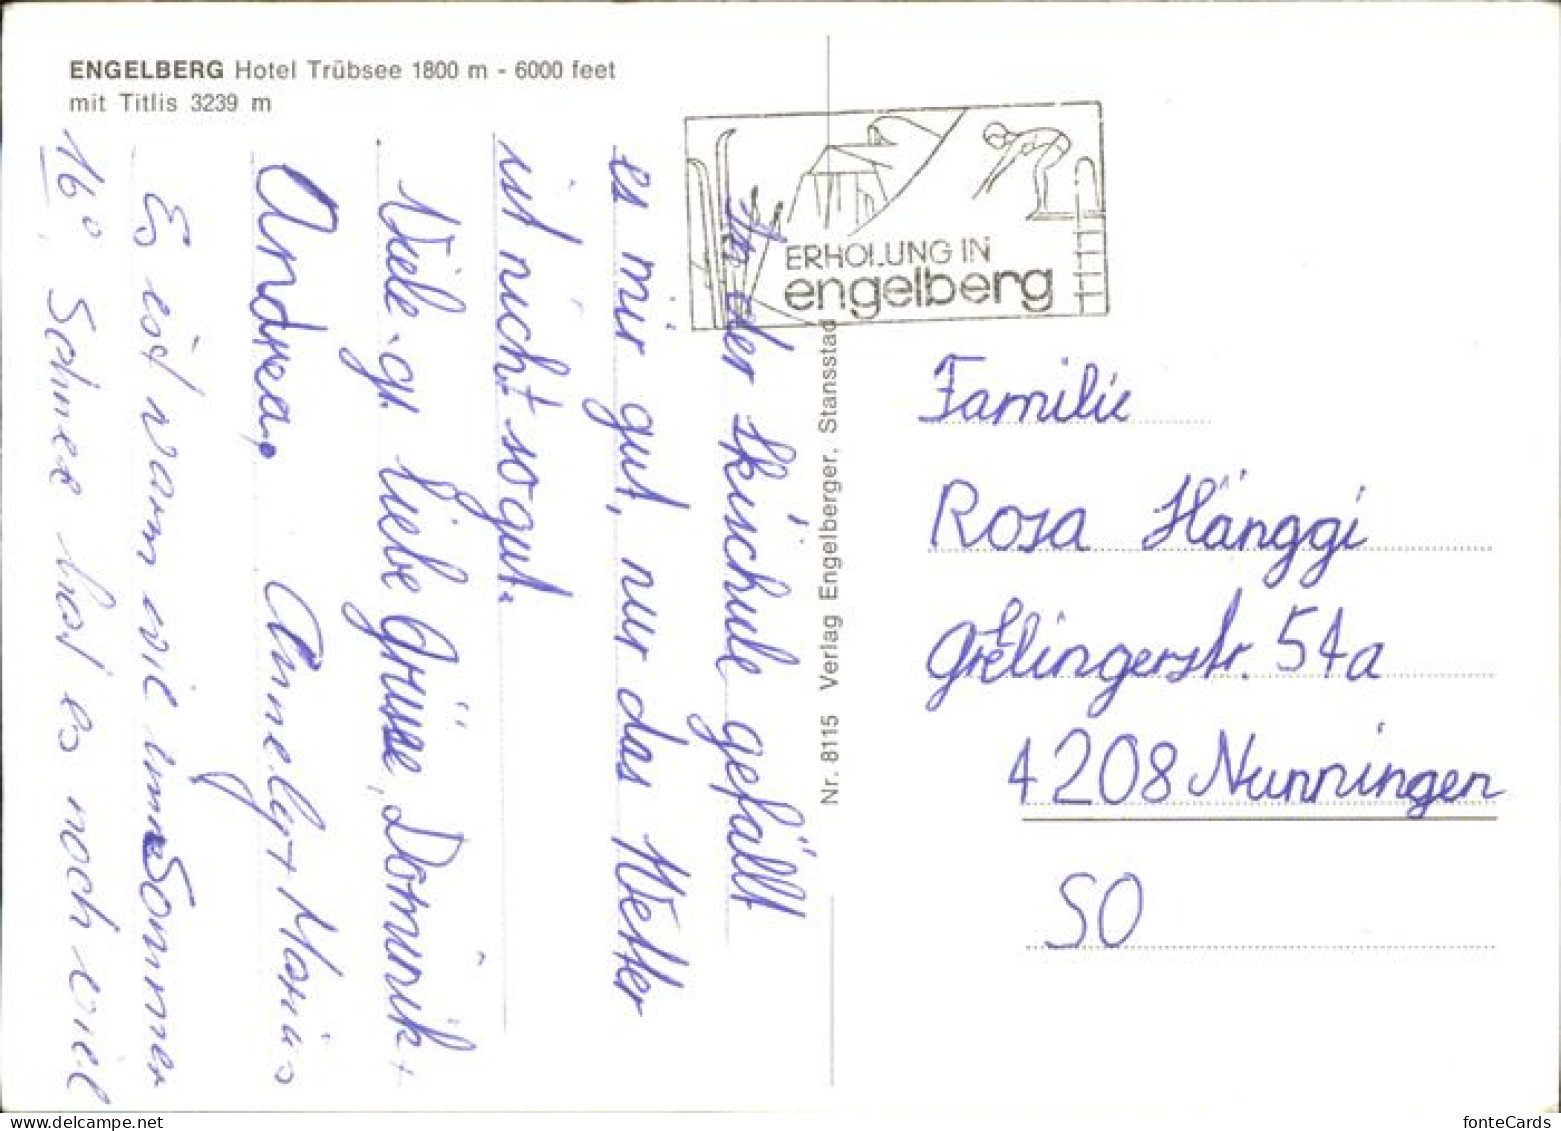 ENGELBERG Hotel Trübsee 1800 m - 6000 feet
mit Titlis 3239 m
ERHOLUNG IN
engelberg
In der Skischule gefällt
es mir gut, nur das Wetter
ist nicht so gut.
Viele. gr. liebe Grüsse, Dominik +
Andrea. Annelys + Marius
Es ist warm wie im Sommer
16°, Schnee hat es noch viel
Nr. 8115 Verlag Engelberger, Stansstad
Familie
Rosa Hänggi
Grellingerstr. 54a
4208 Nunningen
SO
fonteCards